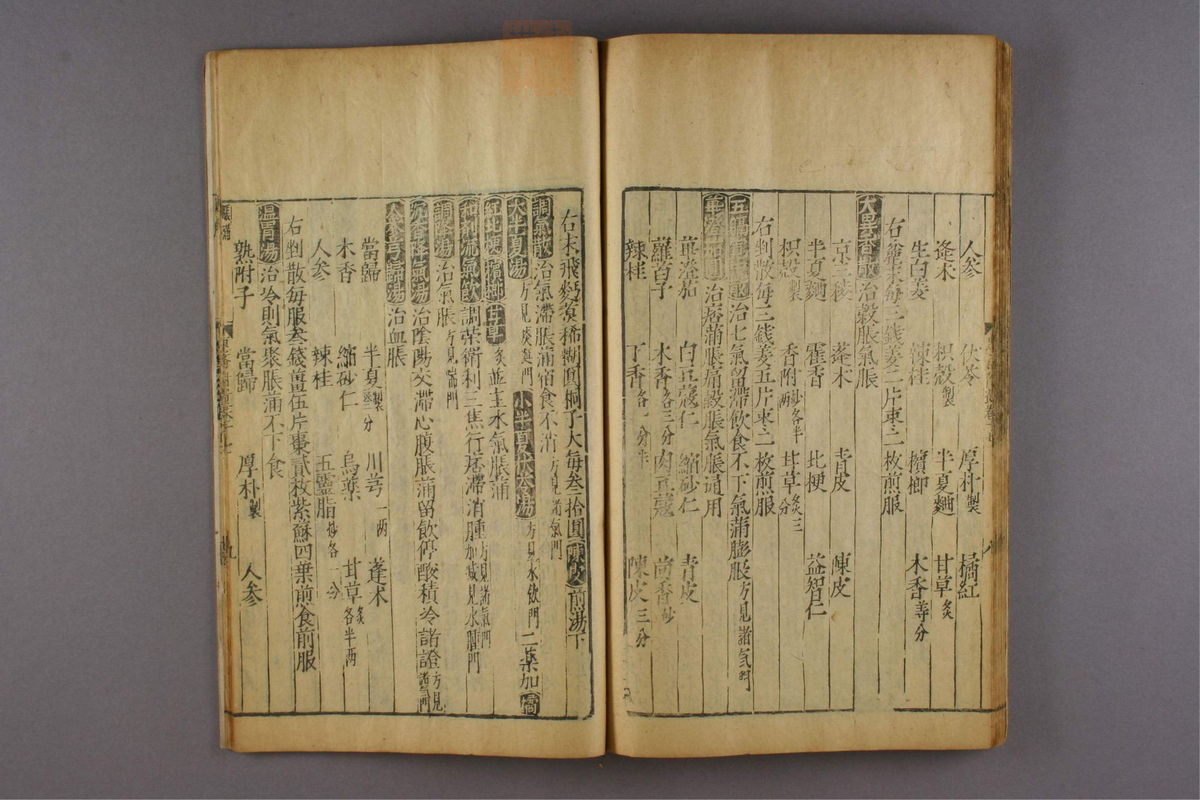 人參 伏苓 厚朴製 橘紅
蓬朮 枳殼製 半夏麯 甘草炙
生白姜 辣桂 檳榔 木香等分
右麄末每三錢姜二片棗二枚煎服
大異香散治穀脹氣脹
京三稜 蓬朮 青皮 陳皮
半夏麯 霍香 北梗 益智仁
枳殼製 香附炒各半兩 甘草炙三分
右剉散每三錢姜五片棗二枚煎服
五膈寬中散治七氣留滯飲食不下氣滿膨脹方見諸氣門
蓽澄茄圓治痞滿脹肩穀脹氣脹通用
蓽澄茄 白豆蔻仁 縮砂仁 青皮
蘿蔔子 木香各三分 肉豆蔻 茴香炒
辣桂 丁香各一分半 陳皮三分
右末飛麪煮稀糊圓桐子大每叁拾圓陳皮煎湯下
調氣散治氣滯脹滿宿食不消方見諸氣門
大半夏湯方見痰與門 小半夏茯苓湯方見水飲門二藥加橘
紅北梗檳榔甘草炙並主水氣脹滿
和劑流氣飲調榮衛利三焦行痞滯消腫方見諸氣門加減見水腫門
調降湯治氣脹方見喘門
沉香降氣湯治陰陽交滯心腹脹滿留飲停酸積冷諸證方見諸氣門
人參芎歸湯治血脹
當歸 半夏製各三分 川芎一兩 蓬朮
木香 縮砂仁 烏藥 甘草炙各半兩
人參 辣桂 五靈脂炒各一分
右剉散每服叁錢薑伍片棗貳枚紫蘇四葉煎食前服
溫胃湯治冷則氣聚脹滿不下食
熟附子 當歸 厚朴製 人參
脹滿